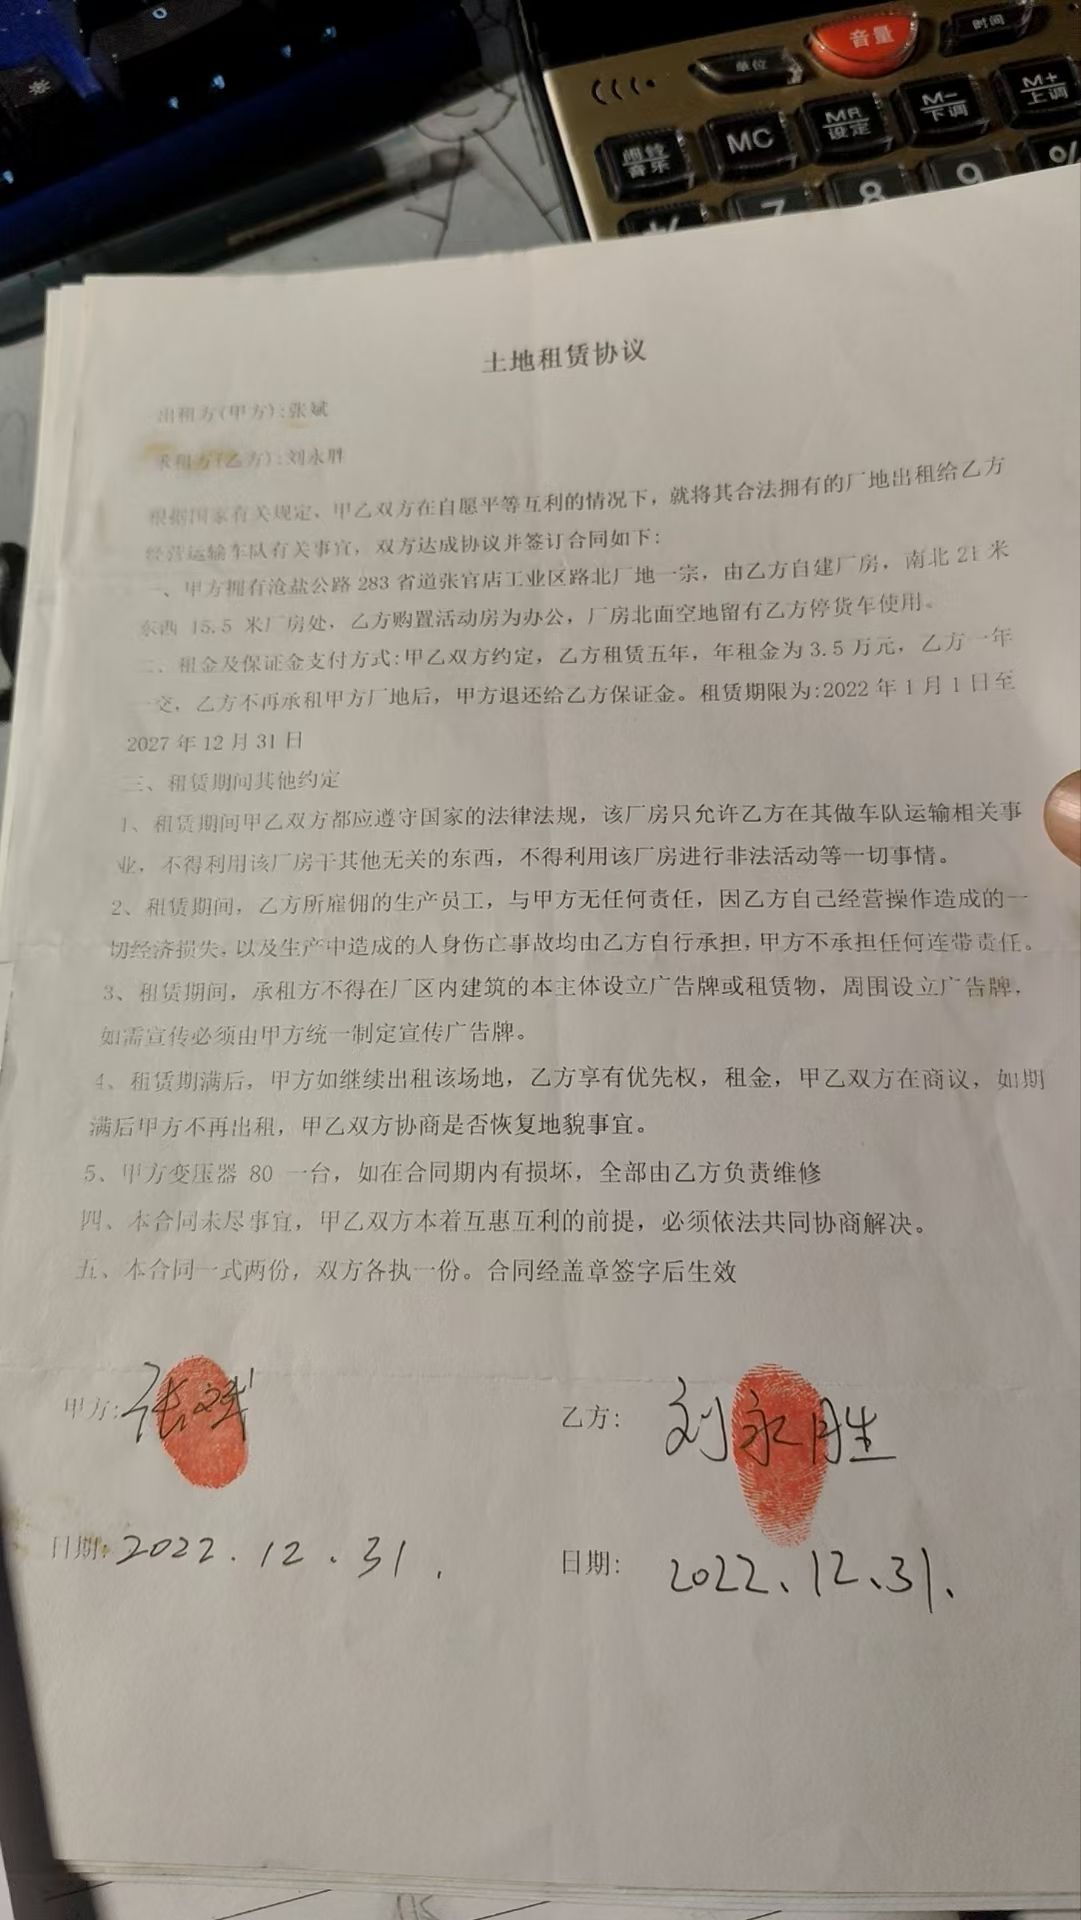 音量
时间
单位
M+
上调
M-
下调
MR
设定
MC
音乐
%
9
8
7
土地租赁协议
出租方(甲方):张斌
承租方(乙方):刘永胜
根据国家有关规定、甲乙双方在自愿平等互利的情况下，就将其合法拥有的厂地出租给乙方
经营运输车队有关事宜，双方达成协议并签订合同如下：
一、甲方拥有沧盐公路 283 省道张官店工业区路北厂地一宗，由乙方自建厂房，南北 21 米
东西 15.5 米厂房处，乙方购置活动房为办公，厂房北面空地留有乙方停货车使用。
二、租金及保证金支付方式:甲乙双方约定，乙方租赁五年，年租金为 3.5 万元，乙方一年
一交，乙方不再承租甲方厂地后，甲方退还给乙方保证金。租赁期限为:2022 年 1 月 1 日至
2027 年 12 月 31 日
三、租赁期间其他约定
1、租赁期间甲乙双方都应遵守国家的法律法规，该厂房只允许乙方在其做车队运输相关事
业，不得利用该厂房干其他无关的东西，不得利用该厂房进行非法活动等一切事情。
2、租赁期间，乙方所雇佣的生产员工，与甲方无任何责任，因乙方自己经营操作造成的一
切经济损失，以及生产中造成的人身伤亡事故均由乙方自行承担，甲方不承担任何连带责任。
3、租赁期间，承租方不得在厂区内建筑的本主体设立广告牌或租赁物，周围设立广告牌，
如需宣传必须由甲方统一制定宣传广告牌。
4、租赁期满后，甲方如继续出租该场地，乙方享有优先权，租金，甲乙双方在商议，如期
满后甲方不再出租，甲乙双方协商是否恢复地貌事宜。
5、甲方变压器 80 一台，如在合同期内有损坏，全部由乙方负责维修
四、本合同未尽事宜，甲乙双方本着互惠互利的前提，必须依法共同协商解决。
五、本合同一式两份，双方各执一份。合同经盖章签字后生效
甲方:张斌
乙方:刘永胜
日期:2022.12.31.
日期:2022、12、31.